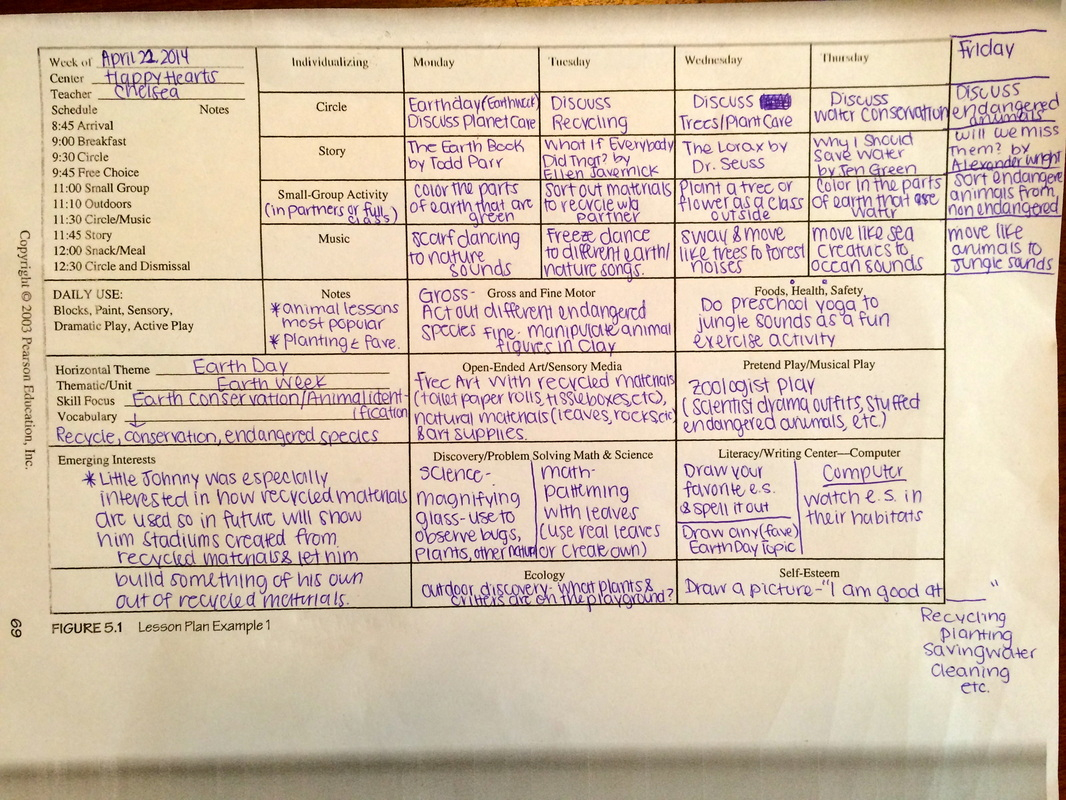 Week of April 22, 2014
Center Happy Hearts
Teacher Chelsea
Schedule Notes
8:45 Arrival
9:00 Breakfast
9:30 Circle
9:45 Free Choice
11:00 Small Group
11:10 Outdoors
11:30 Circle/Music
11:45 Story
12:00 Snack/Meal
12:30 Circle and Dismissal
Individualizing
Monday
Tuesday
Wednesday
Thursday
Friday
Circle
Earthday (Earthweek)
Discuss Planet Care
Discuss
Recycling
Discuss
Trees/Plant Care
Discuss
Water Conservation
Discuss
endangered
animals
Story
The Earth Book
by Todd Parr
What if Everybody
Did That? by
Ellen Javernick
The Lorax by
Dr. Seuss
Why I Should
Save Water
by Jen Green
Will we miss
Them? by
Alexander Wright
Small-Group Activity
(in partners or full
class)
Color the parts
of earth that are
green
Sort out materials
to recycle w/a
partner
Plant a tree or
flower as a class
outside
Color in the parts
of earth that are
water
Sort endangere
animals from
non endangered
Music
Scarf dancing
to nature
sounds
Freeze dance
to different earth/
nature songs.
Sway & move
like trees to forest
noises
move like sea
creatures to
ocean sounds
move like
animals to
Jungle sounds
DAILY USE:
Blocks, Paint, Sensory,
Dramatic Play, Active Play
Notes
*animal lessons
most popular
*Planting & fave.
Gross and Fine Motor
Gross-
Act out different endangered
species fine- manipulate animal
figures in clay
Foods, Health, Safety
Do preschool yoga to
jungle sounds as a fun
exercise activity
Horizontal Theme Earth Day
Thematic/Unit Earth Week
Skill Focus Earth Conservation/Animal ident-
ification
Vocabulary
Recycle, conservation, endangered species
Open-Ended Art/Sensory Media
Free Art with recycled materials
(toilet paper rolls, tissue boxes, etc),
natural materials (leaves, rocks etc)
& art supplies.
Pretend Play/Musical Play
Zoologist play
(scientist drama outfits, stuffed
endangered animals, etc.)
Emerging Interests
*Little Johnny was especially
interested in how recycled materials
are used so in future will show
him stadiums created from
recycled materials & let him
build something of his own
out of recycled materials.
Discovery/Problem Solving Math & Science
Science-
magnifying
glass- use to
observe bugs,
plants, other natur
math-
patterning
with leaves
(use real leaves
or create own)
Literacy/Writing Center—Computer
Draw your
favorite e.s.
& spell it out
Draw any (fave)
Earth Day Topic
Computer
watch e.s. in
their habitats
Ecology
outdoor discovery- what plants &
critters are on the playground?
Self-Esteem
Draw a picture-"I am good at ___"
Recycling
planting
saving water
cleaning
etc.
Copyright © 2003 Pearson Education, Inc.
69
FIGURE 5.1 Lesson Plan Example 1